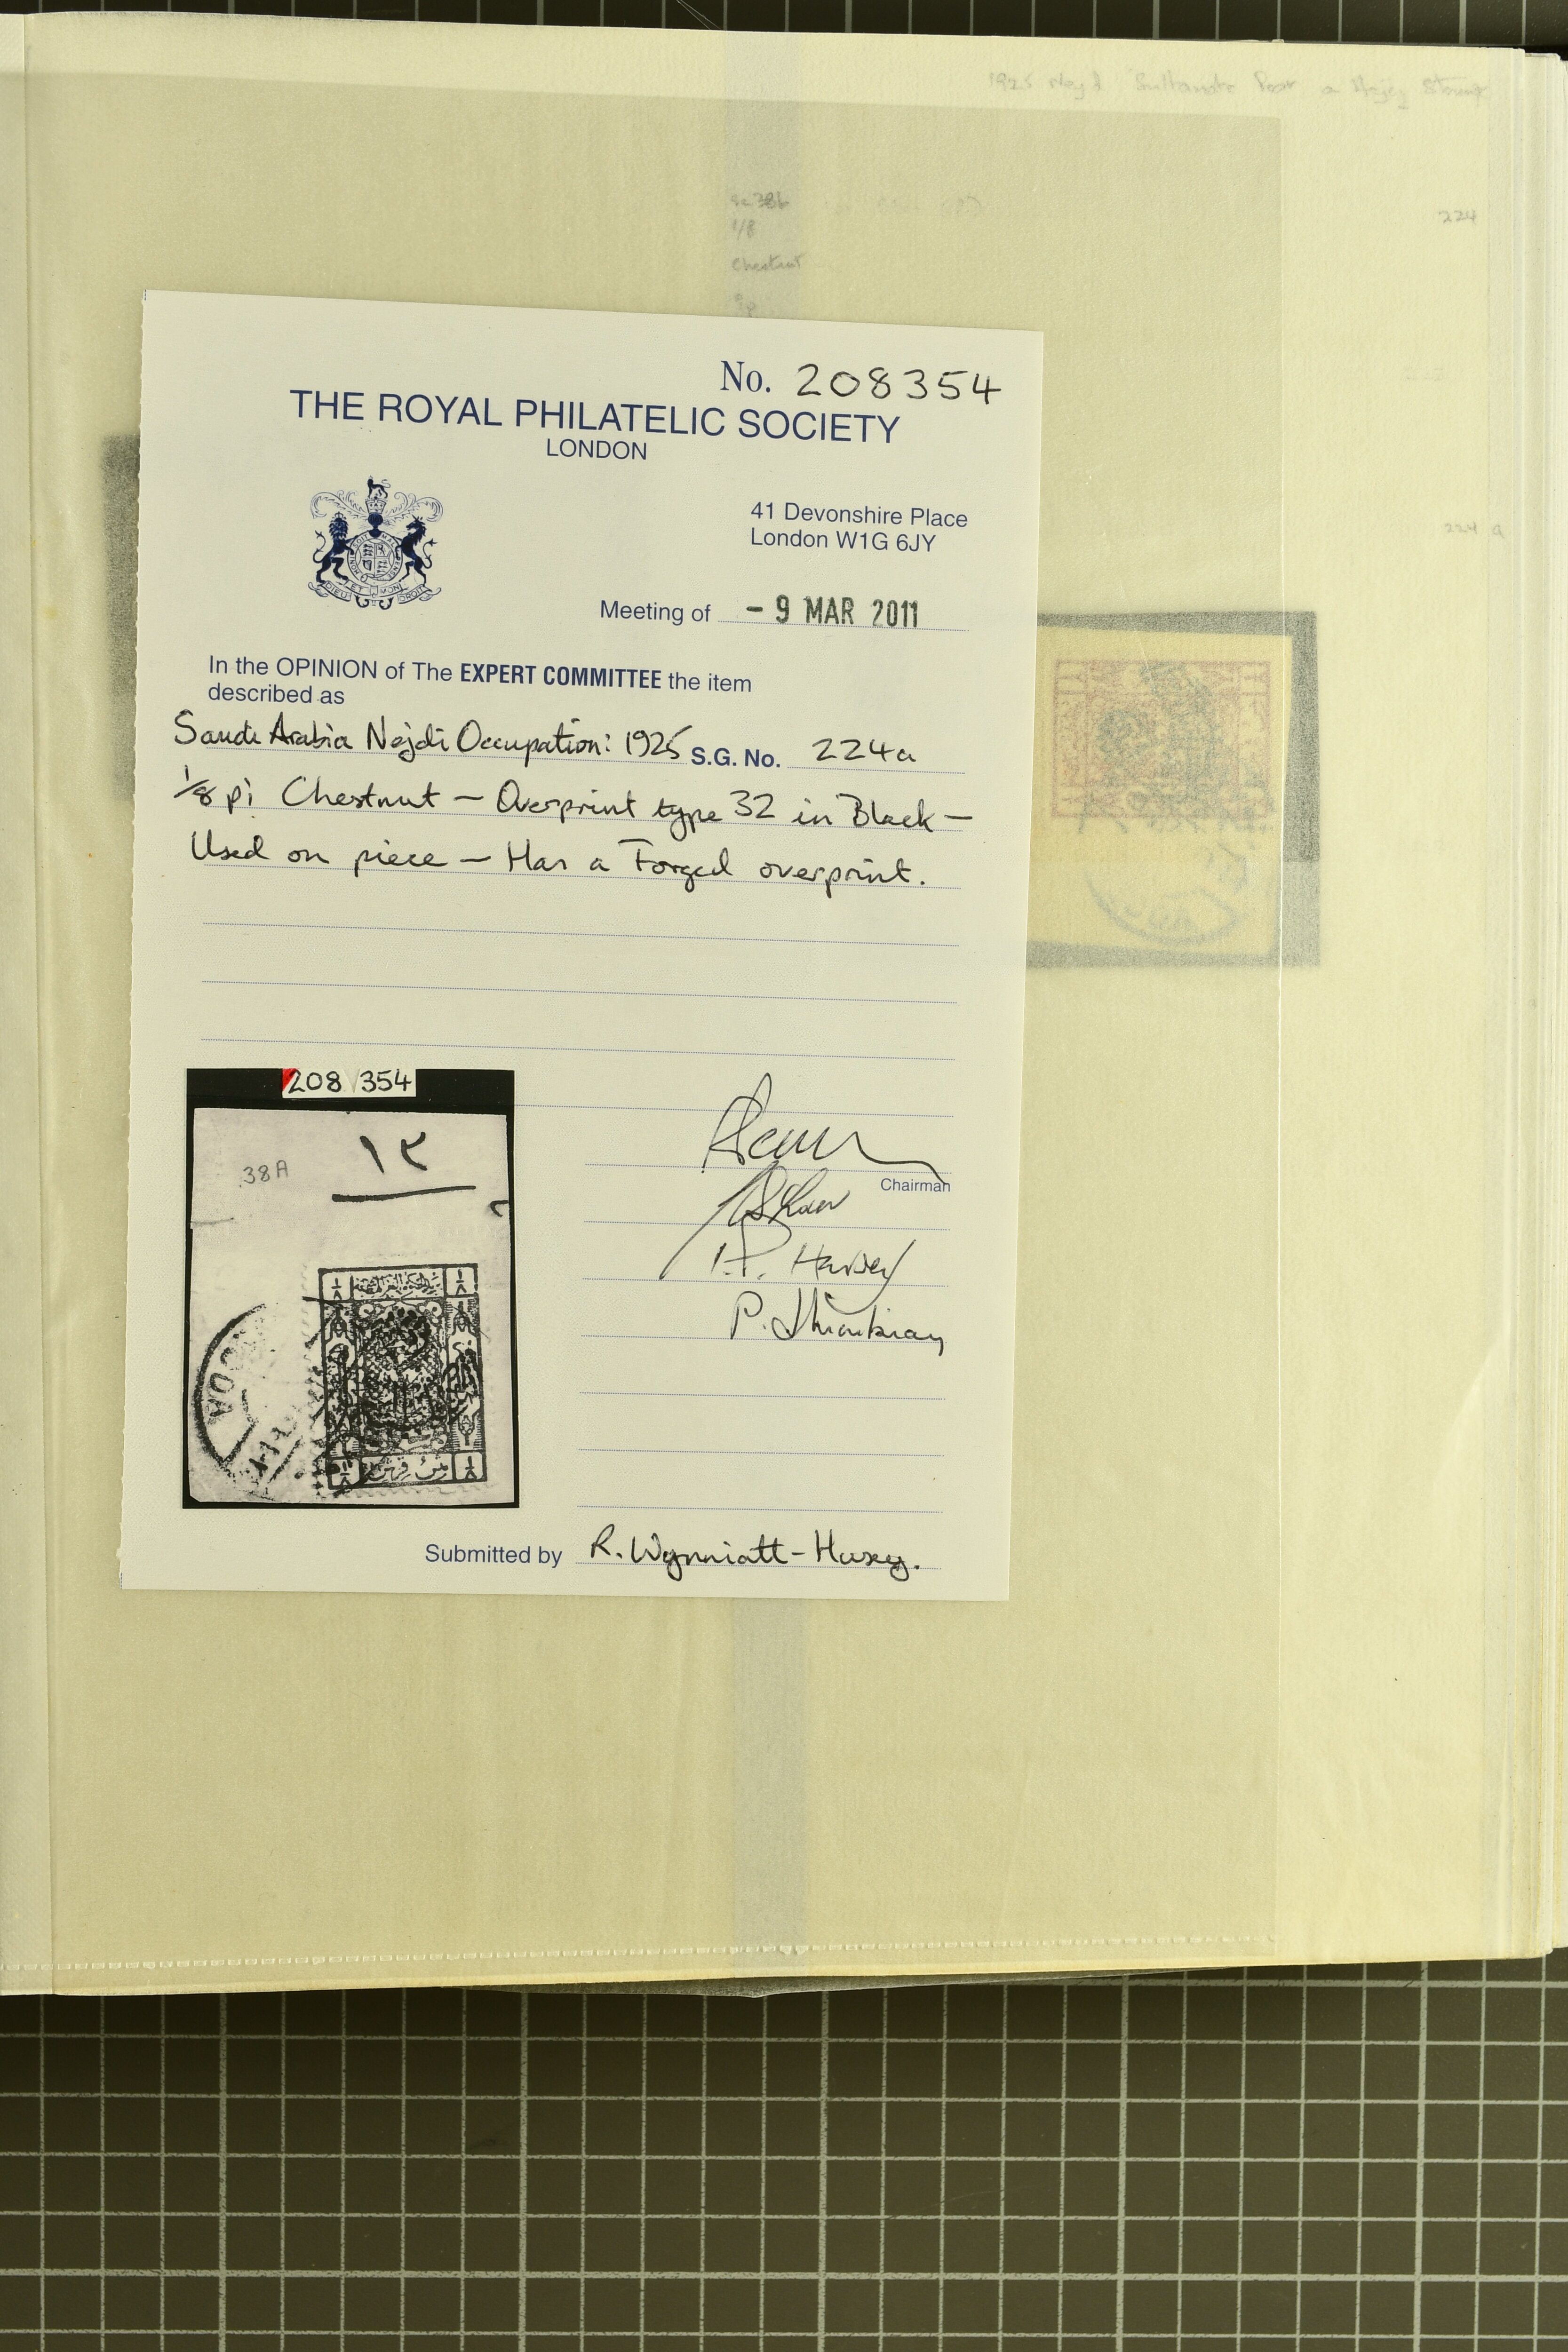 1925 Nejd Sultanate Post
224
1/8
Chestnut
224 a
No. 208354
THE ROYAL PHILATELIC SOCIETY
LONDON
41 Devonshire Place
London W1G 6JY
Meeting of - 9 MAR 2011
In the OPINION of The EXPERT COMMITTEE the item
described as
Saudi Arabia Nejdi Occupation: 1925 S.G. No. 224a
1/8 pi Chestnut – Overprint type 32 in Black –
Used on piece – Has a Forged overprint.
208 354
١٢
38A
Chairman
Submitted by R. Wynniatt-Husey.